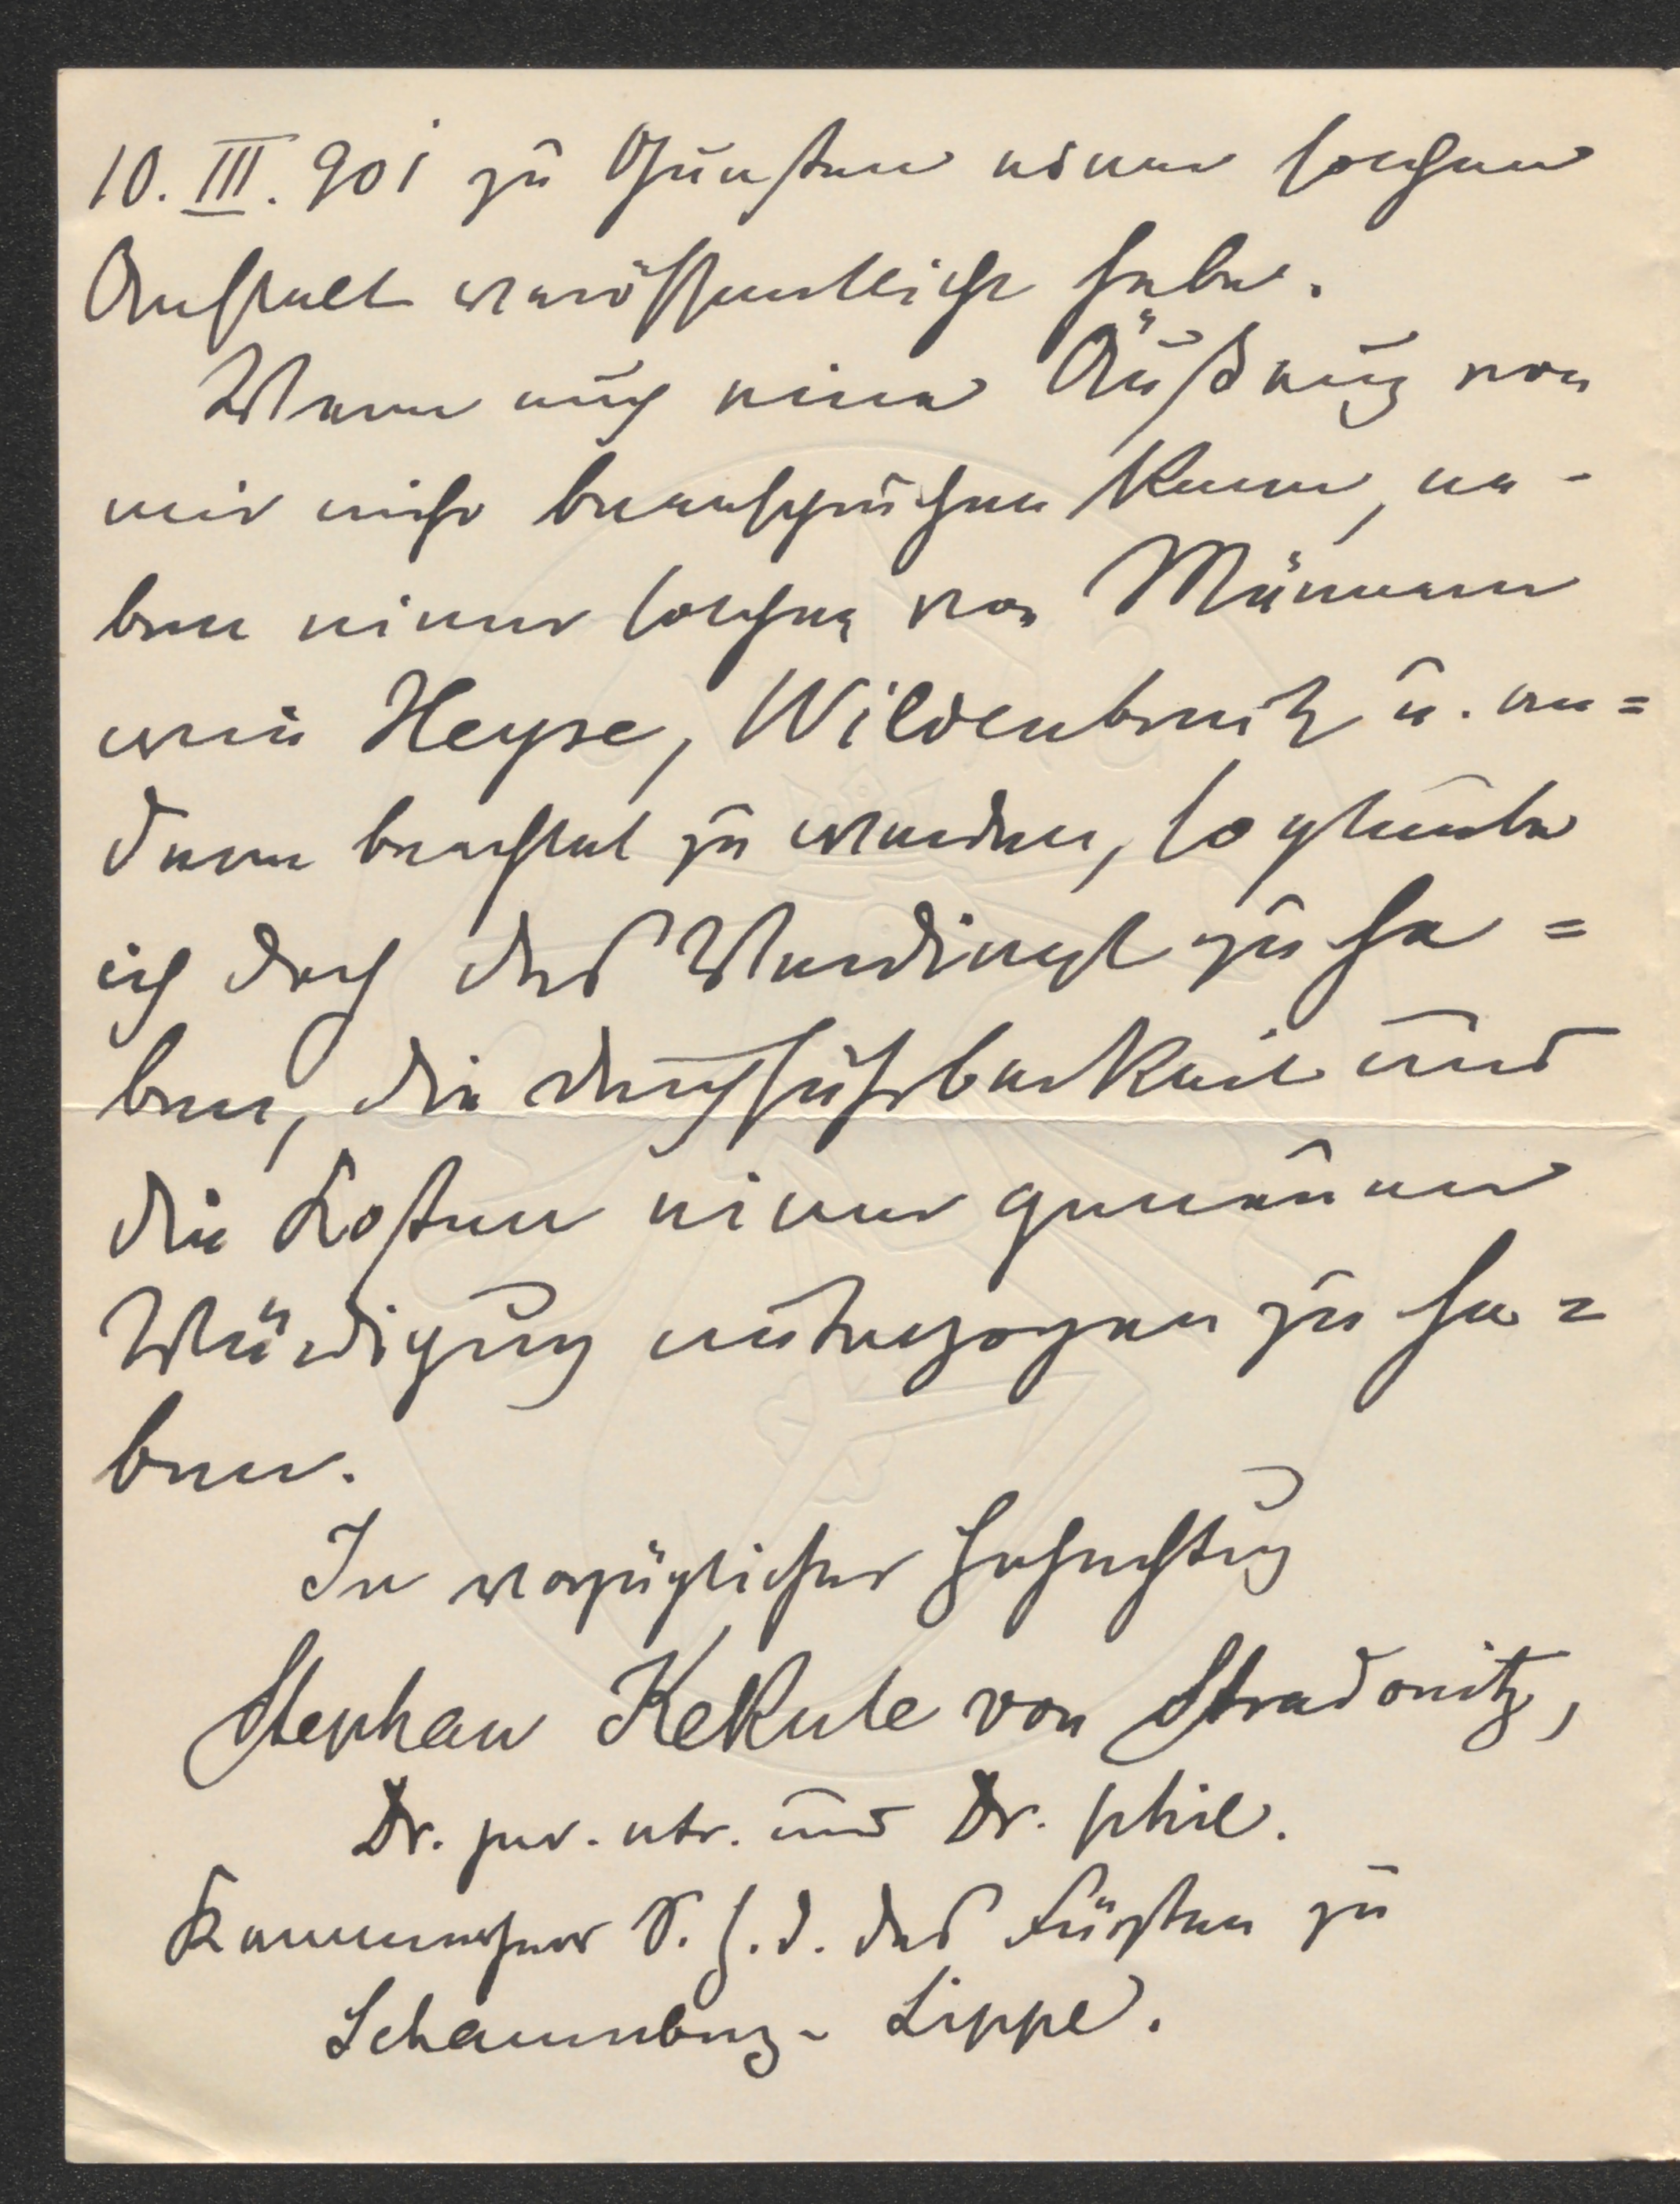 10. III. 901 zu Gunsten einer solchen
Anstalt veröffentlicht habe.
Wenn auch eine Äußerung von
mir nicht beanspruchen kann, ne-
ben einer solchen von Männern
wie Heyse, Wildenbruch u. an=
deren beachtet zu werden, so glaube
ich doch das Verdienst zu ha=
ben, die Durchführbarkeit und
die Kosten einer genauen
Würdigung unterzogen zu ha=
ben.
In vorzüglicher Hochachtung
Stephan Kekule von Stradonitz,
Dr. jur. utr. und Dr. phil.
Kammerherr S. H. D. des Fürsten zu
Schaumburg-Lippe.